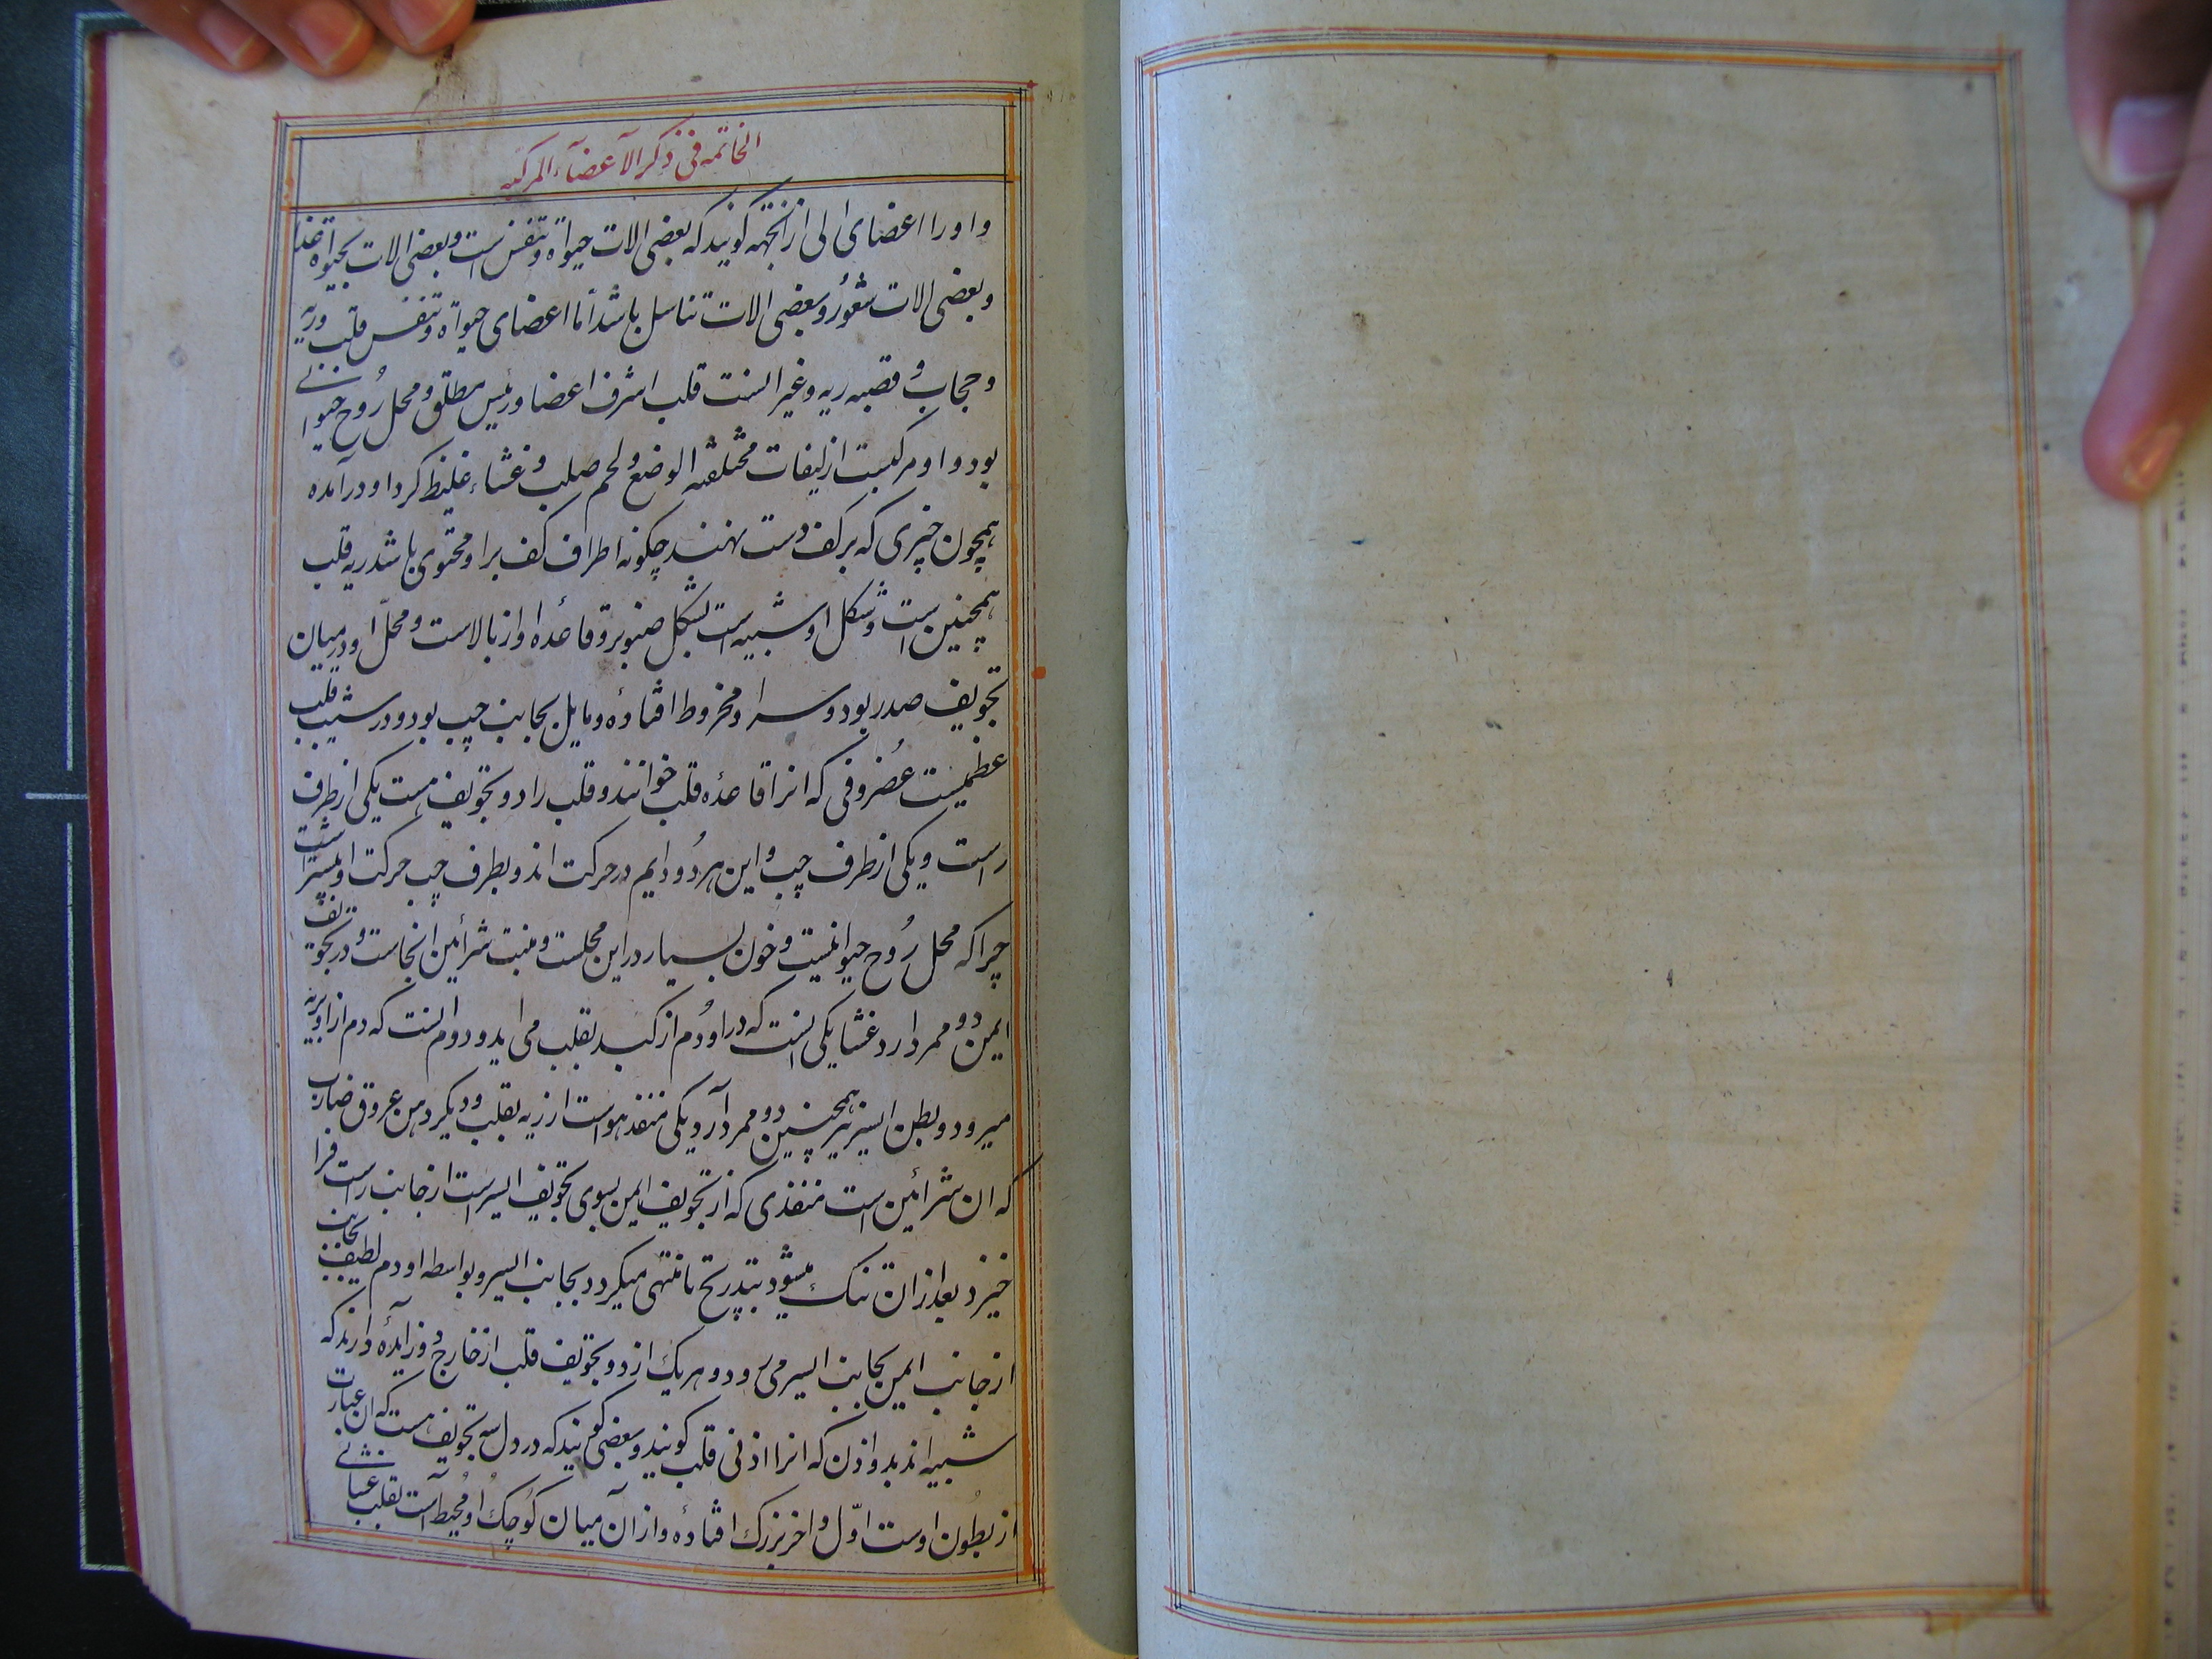 الخاتمه فی ذکر الآعضآء المرکبه
و او را اعضای الی از انجهه کویند که بعضی الات حیوة و تنفس است و بعضی الات بحیوة غذا
و بعضی الات شعور و بعضی الات تناسل باشد اما اعضای حیوة و تنفس قلب و ریه
و حجاب و قصبه ریه و غیر انست قلب اشرف اعضا و رئیس مطلق و محل رُوح حیوانی
بود و او مرکبست از لیفات مختلفه الوضع و لحم صلب و غشاء غلیظ کرد او درآمده
همچون چیزی که بر کف دست نهند چکونه اطراف کف بر او محتوی باشد ریه قلب
همچنین است و شکل او شبیه است بشکل صنوبر و قاعده او از بالاست و محلّ او در میان
تجویف صدر بود و سر او مخروط افتاده و مایل بجانب چپ بود و در شیب قلب
عظمیست غضروفی که انرا قاعدهٔ قلب خوانند و قلب را دو تجویف هست یکی از طرف
راست و یکی از طرف چپ و این هر دُو دایم در حرکت اند و بطرف چپ حرکت او بیشتر است
چرا که محل رُوح حیوانیست و خون بسیار در این محلست و منبت شرائین انجاست و در تجویف
ایمن دو ممر دارد غشا یکی انست که در او دُم از کبد بقلب می اید و دوم انست که دم از او بریه
میرود و بطن ایسر نیز همچنین دو ممر دارد یکی منفذ هواست از ریه بقلب و دیکر دهن عروق ضارب
که ان شرائین است منفذی که از تجویف ایمن بسوی تجویف ایسر است از جانب راست فرا
خیزد بعد از ان تنک میشود بتدریج تا منتهی میکردد بجانب ایسر و بواسطه او دم لطیف بجانب
از جانب ایمن بجانب ایسر می رود و هر یک از دو تجویف قلب از خارج دو زایدهٔ دارند که
شبیه اند بدو اذن که انرا اذنی قلب کویند و بعضی کویند که در دل سه تجویف هست که ان عبارت
از بطُون اوست اوّل و اخر بزرک افتادهٔ و از آن میان کوچک او مُحیط است بقلب غشائی